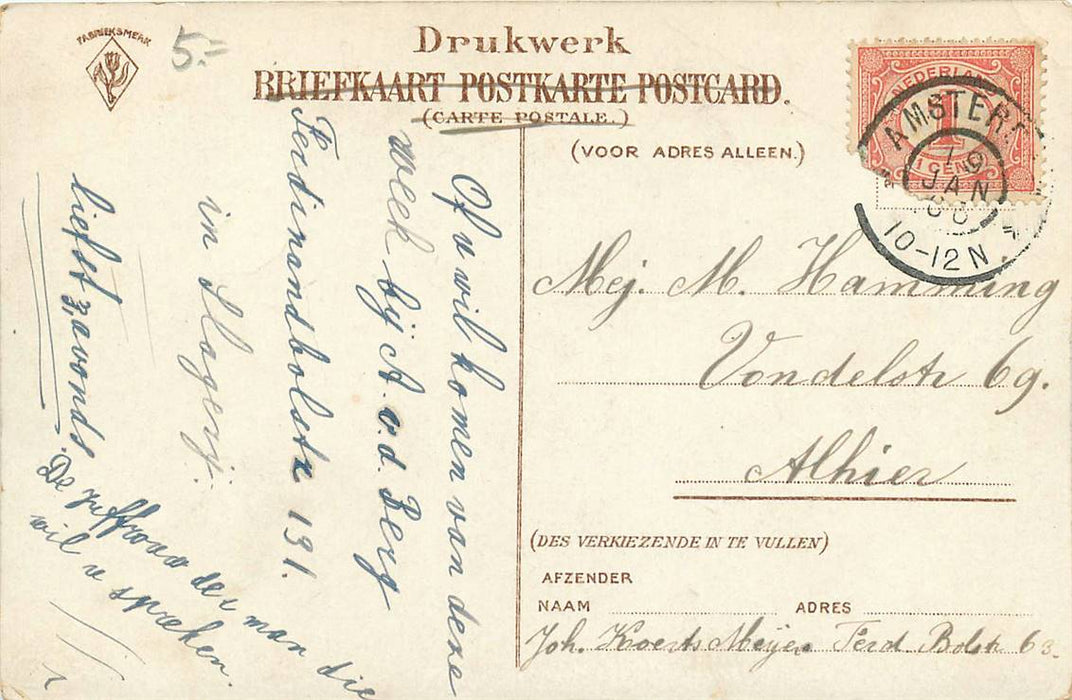 FABRIEKSMERK
5.-
Drukwerk
BRIEFKAART POSTKARTE POSTCARD.
(CARTE POSTALE.)
(VOOR ADRES ALLEEN.)
NEDERLAND
1
1 CENT
AMSTERD
JAN
10-12N
Of u wil komen van deze
week bij A. v.d. Berg
Ferdinandbolstr 131.
in Slagerij.
liefst 's avonds
De juffrouw der man die
wil u spreken.
Mej. M. Hamming
Vondelstr 69.
Alhier
(DES VERKIEZENDE IN TE VULLEN)
AFZENDER
NAAM ADRES
Joh. Koerts Meijer Ferd. Bolstr 63.